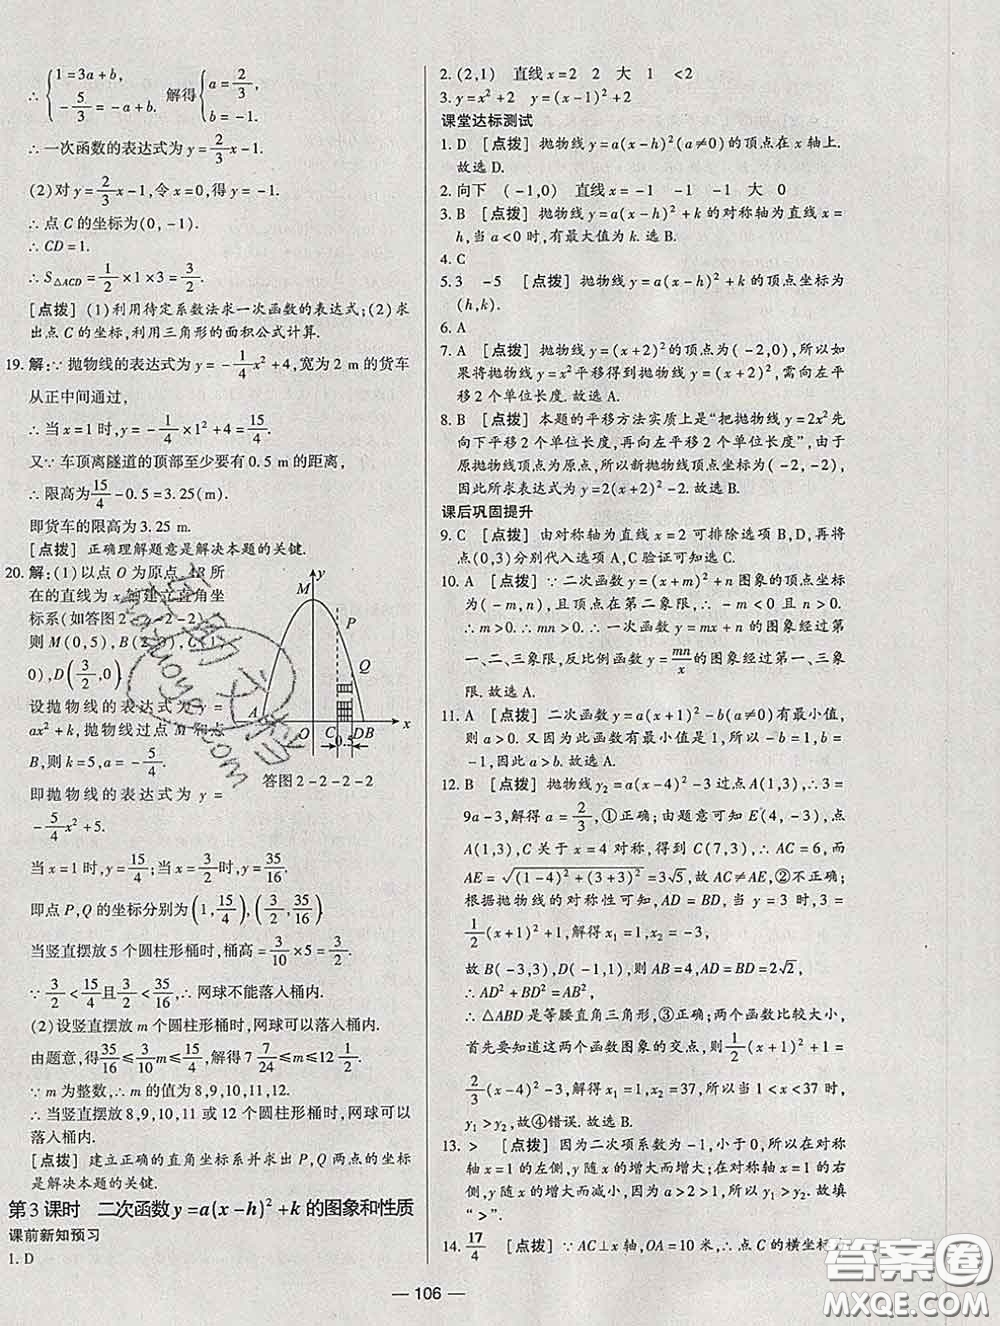 ∴ { 1=3a+b, -5/3=-a+b. 解得 { a=2/3, b=-1.
∴一次函数的表达式为 y=2/3x-1.
(2)对 y=2/3x-1,令 x=0,得 y=-1.
∴点 C 的坐标为(0,-1).
∴CD=1.
∴S△ACD=1/2×1×3=3/2.
[点拨] (1)利用待定系数法求一次函数的表达式;(2)求
出点 C 的坐标,利用三角形的面积公式计算.
19.解:∵抛物线的表达式为 y=-1/4x²+4,宽为 2 m 的货车
从正中间通过,
∴当 x=1 时,y=-1/4×1²+4=15/4.
又∵车顶离隧道的顶部至少要有 0.5 m 的距离,
∴限高为15/4-0.5=3.25(m).
即货车的限高为 3.25 m.
[点拨] 正确理解题意是解决本题的关键.
20.解:(1)以点 O 为原点,AB 所
在的直线为 x 轴建立直角坐
标系(如答图 2-2-2-2),
则 M(0,5),B(2,0),C(1,
0),D(3/2,0).
设抛物线的表达式为 y=
ax²+k,抛物线过点 M 和点
B,则 k=5,a=-5/4.
即抛物线的表达式为 y=
-5/4x²+5.
M y P Q A O C D B x 0.5
答图 2-2-2-2
当 x=1 时,y=15/4;当 x=3/2时,y=35/16.
即点 P,Q 的坐标分别为(1,15/4),(3/2,35/16).
当竖直摆放 5 个圆柱形桶时,桶高=3/10×5=3/2.
∵3/2<15/4且3/2<35/16,∴网球不能落入桶内.
(2)设竖直摆放 m 个圆柱形桶时,网球可以落入桶内.
由题意,得35/16≤3/10m≤15/4,解得 7 7/24≤m≤12 1/2.
∵m 为整数,∴m 的值为 8,9,10,11,12.
∴当竖直摆放 8,9,10,11 或 12 个圆柱形桶时,网球可以
落入桶内.
[点拨] 建立正确的直角坐标系并求出 P,Q 两点的坐标
是解决本题的关键.
第 3 课时 二次函数 y=a(x-h)²+k 的图象和性质
课前新知预习
1.D
2.(2,1) 直线 x=2 2 大 1 <2
3.y=x²+2 y=(x-1)²+2
课堂达标测试
1.D [点拨] 抛物线 y=a(x-h)²(a≠0)的顶点在 x 轴上.
故选 D.
2.向下 (-1,0) 直线 x=-1 -1 -1 大 0
3.B [点拨] 抛物线 y=a(x-h)²+k 的对称轴为直线 x=
h,当 a<0 时,有最大值为 k.选 B.
4.C
5.3 -5 [点拨] 抛物线 y=a(x-h)²+k 的顶点坐标为
(h,k).
6.A
7.A [点拨] 抛物线 y=(x+2)²的顶点为(-2,0),所以如
果将抛物线 y=x²平移得到抛物线 y=(x+2)²,需向左平
移 2 个单位长度.故选 A.
8.B [点拨] 本题的平移方法实质上是“把抛物线 y=2x²先
向下平移 2 个单位长度,再向左平移 2 个单位长度”,由于
原抛物线顶点为原点,所以新抛物线顶点为(-2,-2),
因此所求表达式为 y=2(x+2)²-2.故选 B.
课后巩固提升
9.C [点拨] 由对称轴为直线 x=2 可排除选项 B,D,再将
点(0,3)分别代入选项 A,C 验证可知选 C.
10.A [点拨] ∵二次函数 y=(x+m)²+n 图象的顶点坐标
为(-m,n),且顶点在第二象限,∴-m<0 且 n>0.
∴m>0.∴mn>0.∴一次函数 y=mx+n 的图象经过第
一、二、三象限,反比例函数 y=mn/x的图象经过第一、三象
限.故选 A.
11.A [点拨] 二次函数 y=a(x+1)²-b(a≠0)有最小值,
则 a>0.又因为此函数有最小值是 1,所以-b=1,b=
-1,因此 a>b.故选 A.
12.B [点拨] 抛物线 y₂=a(x-4)²-3 过点 A(1,3),∴3=
9a-3,解得 a=2/3,①正确;由题意可知 E(4,-3),点
A(1,3),C 关于 x=4 对称,得到 C(7,3),∴AC=6,而
AE=√((1-4)²+(3+3)²)=3√5,故 AC≠AE,②不正确;
根据抛物线的对称性可知,AD=BD,当 y=3 时,3=
1/2(x+1)²+1,解得 x₁=1,x₂=-3,
故 B(-3,3),D(-1,1),所以 AB=4,AD=BD=2√2,
∴AD²+BD²=AB²,
∴△ABD 是等腰直角三角形,③正确;两个函数比较大小,
首先要知道这两个函数图象的交点,则1/2(x+1)²+1=
2/3(x-4)²-3,解得 x₁=1,x₂=37,所以当 1<x<37 时,
y₁>y₂,故④错误.故选 B.
13.> [点拨] 因为二次项系数为-1,小于 0,所以在对称
轴 x=1 的左侧,y 随 x 的增大而增大;在对称轴 x=1 的右
侧,y 随 x 的增大而减小,因为 a>2>1,所以 y₁>y₂.故填
“>”.
14.17/4 [点拨] ∵AC⊥x 轴,OA=10 米,∴点 C 的横坐标
— 106 —
答案圈
MXQE.COM